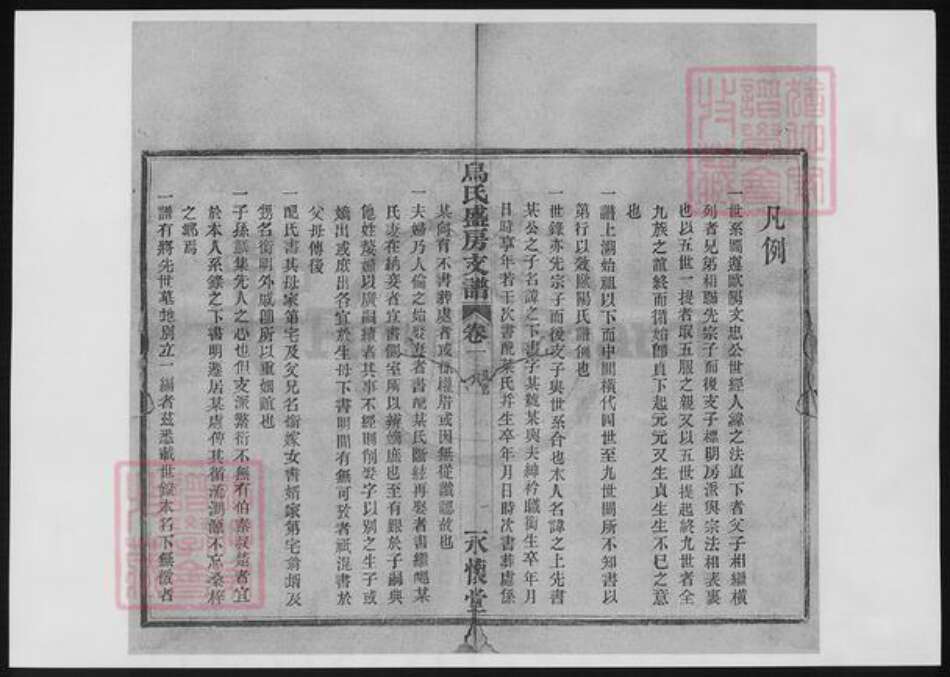 凡例
一世系圖遵歐陽文忠公世經人緯之法直下者父子相繼橫
列者兄弟相聯先宗子而後支子標明房派與宗法相表裏
也以五世一提者取五服之親又以五世提起終九世者全
九族之誼終而復始即貞下起元元又生貞生生不已之意
也
一譜上溯始祖以下而中間橫代四世至九世間所不知書以
第行以效歐陽氏譜例也
一世錄亦先宗子而後支子與世系合也本人名諱之上先書
某公之子名諱之下書字某號某與夫紳衿職銜生卒年月
日時享年若干次書配某氏并生卒年月日時次書葬處係
某向有不書葬處者或係權厝或因無從識認故也
一夫婦乃人倫之始娶妻者書配某氏斷絃再娶者書繼配某
氏妻在納妾者宜書側室所以辨嫡庶也至有艱於子嗣與
他姓以廣嗣續者其事不經則削娶字以別之生子或
嫡出或庶出各宜於生母下書明間有無可攷者祇混書於
父母傳後
一配氏書其母家第宅及父兄名銜嫁女書婿家第宅翁婿及
甥名銜明外戚即所以重姻誼也
一子孫萃集先人之心也但支派繁衍不無有伯秦叔楚者宜
於本人系錄之下書明遷居某處俾其循流溯源不忘桑梓
之鄉焉
一譜有將先世墓地別立一編者茲悉載世錄本名下無憾者
烏氏盛房支譜
卷一
永懷堂